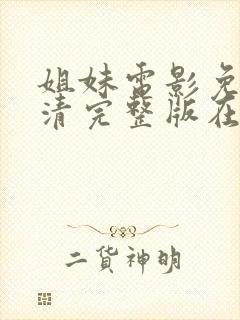 姐妹雷影免
清完整版在
二货神明